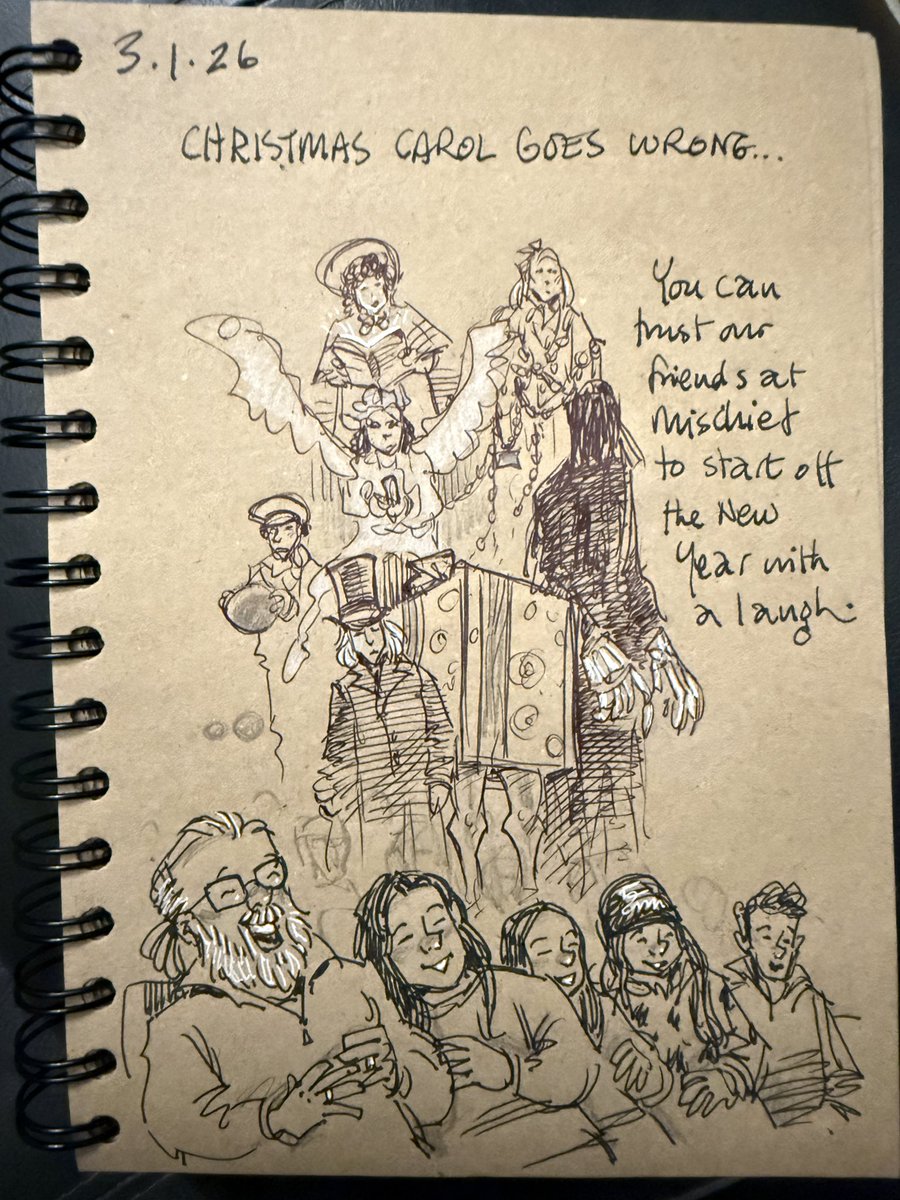 3.1.26
CHRISTMAS CAROL GOES WRONG...
You can
trust our
friends at
Mischief
to start off
the New
Year with
a laugh.